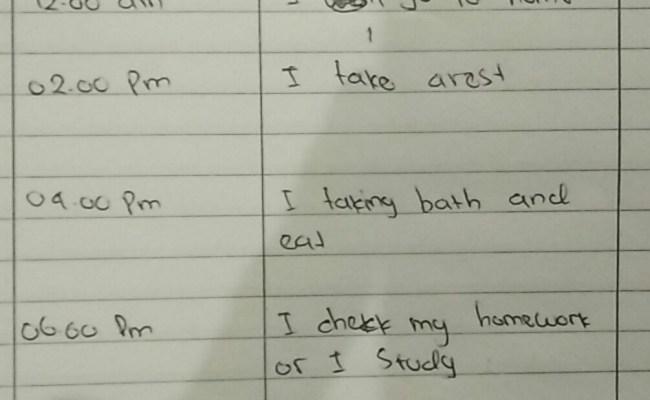 12.00 am I go to home
02.00 Pm I take arest
04.00 Pm I taking bath and
eat
06.00 Pm I check my homework
or I Study